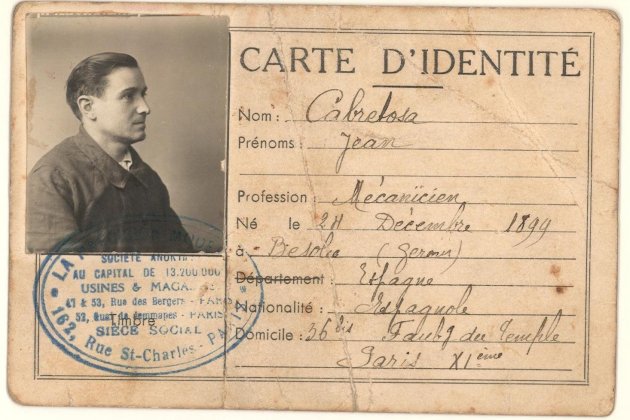 CARTE D'IDENTITÉ
Nom : Cabretosa
Prénoms : Jean
Profession : Mécanicien
Né le 24 Décembre 1899
à Besolu
Département : Espagne
Nationalité : Espagnole
Domicile : 36 bis Faubg du Temple
Paris XIème
SOCIÉTÉ
AU CAPITAL DE 13.200.000
USINES &
41 & 53, Rue des Bergers - PARIS
52, Quai de Jemmapes - PARIS
SIÈGE SOCIAL
162, Rue St-Charles - PARIS
Timbre